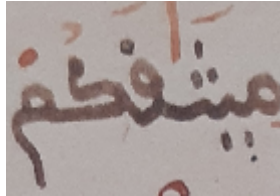 ميثقكم